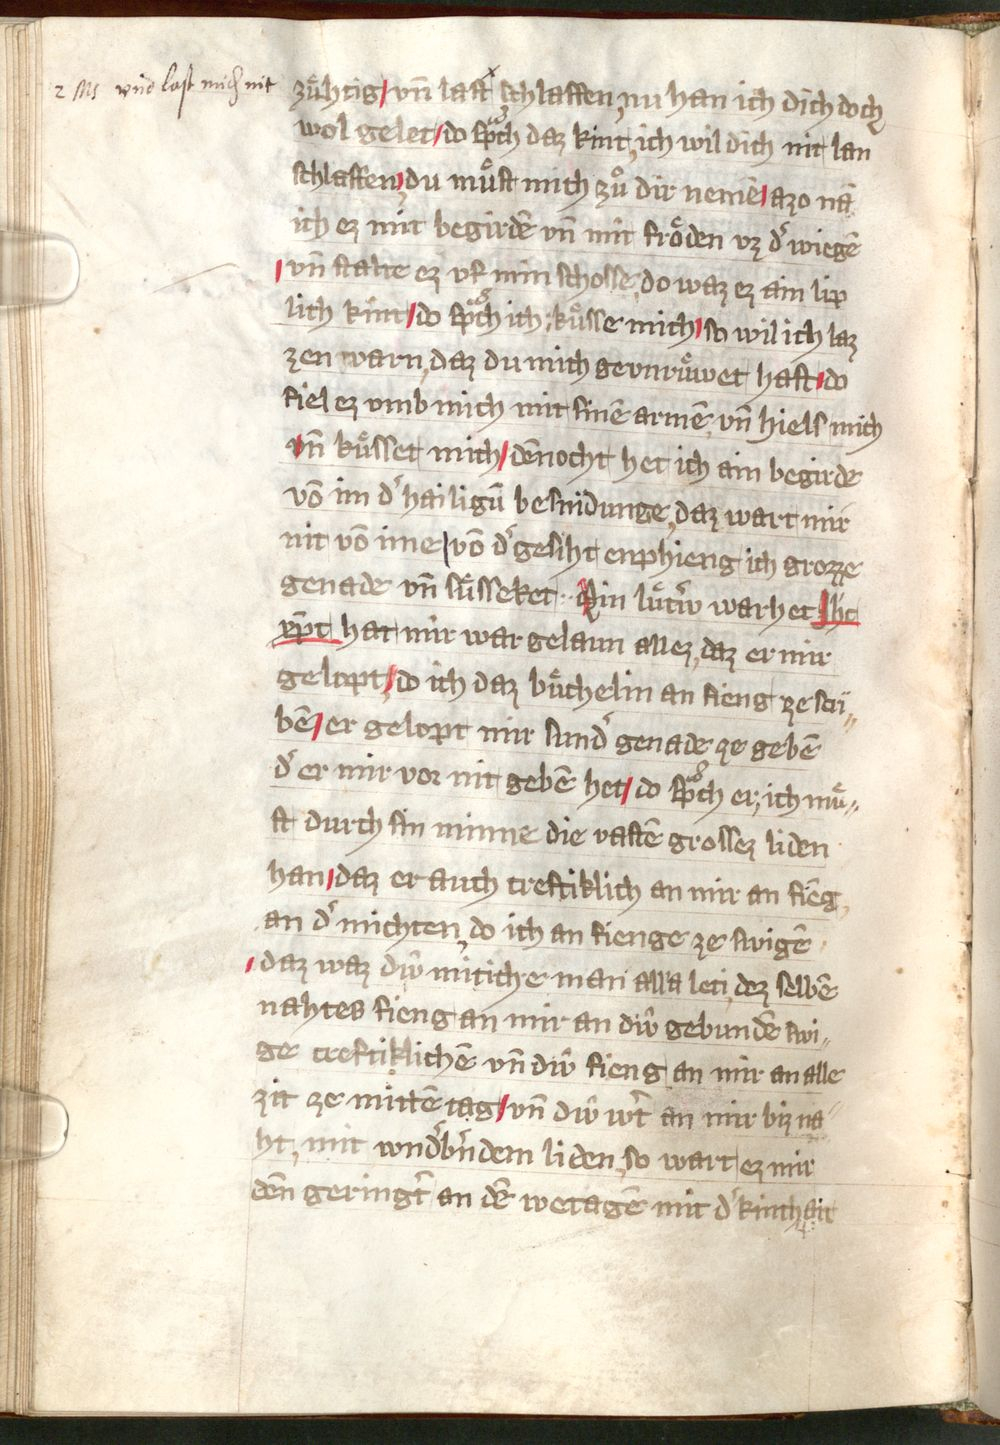 2 Ms vnd last mich nit
zuͤhtig / vn̄ last schlaffen, nu han ich dich doch
wol gelet / do sp̄ch daz kint, ich wil dich nit lan
schlaffen / du muͤst mich zuͦ dir nemē / azo nā
ich ez mit begirdē vn̄ mit froͤden vz d' wiegē
/ vn̄ stalte ez vf min schosse, do waz ez ain lip
lich kint / do sp̄ch ich, kuͤsse mich / so wil ich laz
zen warn, daz du mich gevnruͤwet hast / do
fiel ez vmb mich mit sinē armē vn̄ hiels mich
vn̄ kuͤsset mich / dēnocht het ich ain begirde
vō im d' hailigū besnidunge, daz wart mir
nit vō ime / vō d' gesiht enphieng ich grozze
genade vn̄ suͤsseket. Din luͤtw̄ warhet Jh̄c
xp̄c hat mir war gelaun allez, daz er mir
gelopt / do ich daz buͤchelin an fieng ze scri
bē / er gelopt mir sund' genade ze gebē
d' er mir vor nit gebē het / do sp̄ch er, ich muͤ„
st durch sin minne die vastē grossez liden
han / daz er auch creftiklich an mir an fieg
an d' michten, do ich an fienge ze swigē
/ daz waz diw̄ miticher man alla leti, dez selbē
nahtes fieng an mir an diw̄ gebundē swi„
ge creftiklichē vn̄ diw̄ fieng an mir an alle
zit ze mittē tag / vn̄ diw̄ wt̄ an mir biz na„
ht, mit wnd'b'ndem liden, so wart ez mir
dēn geringt' an dē wetagē mit d' kinthait